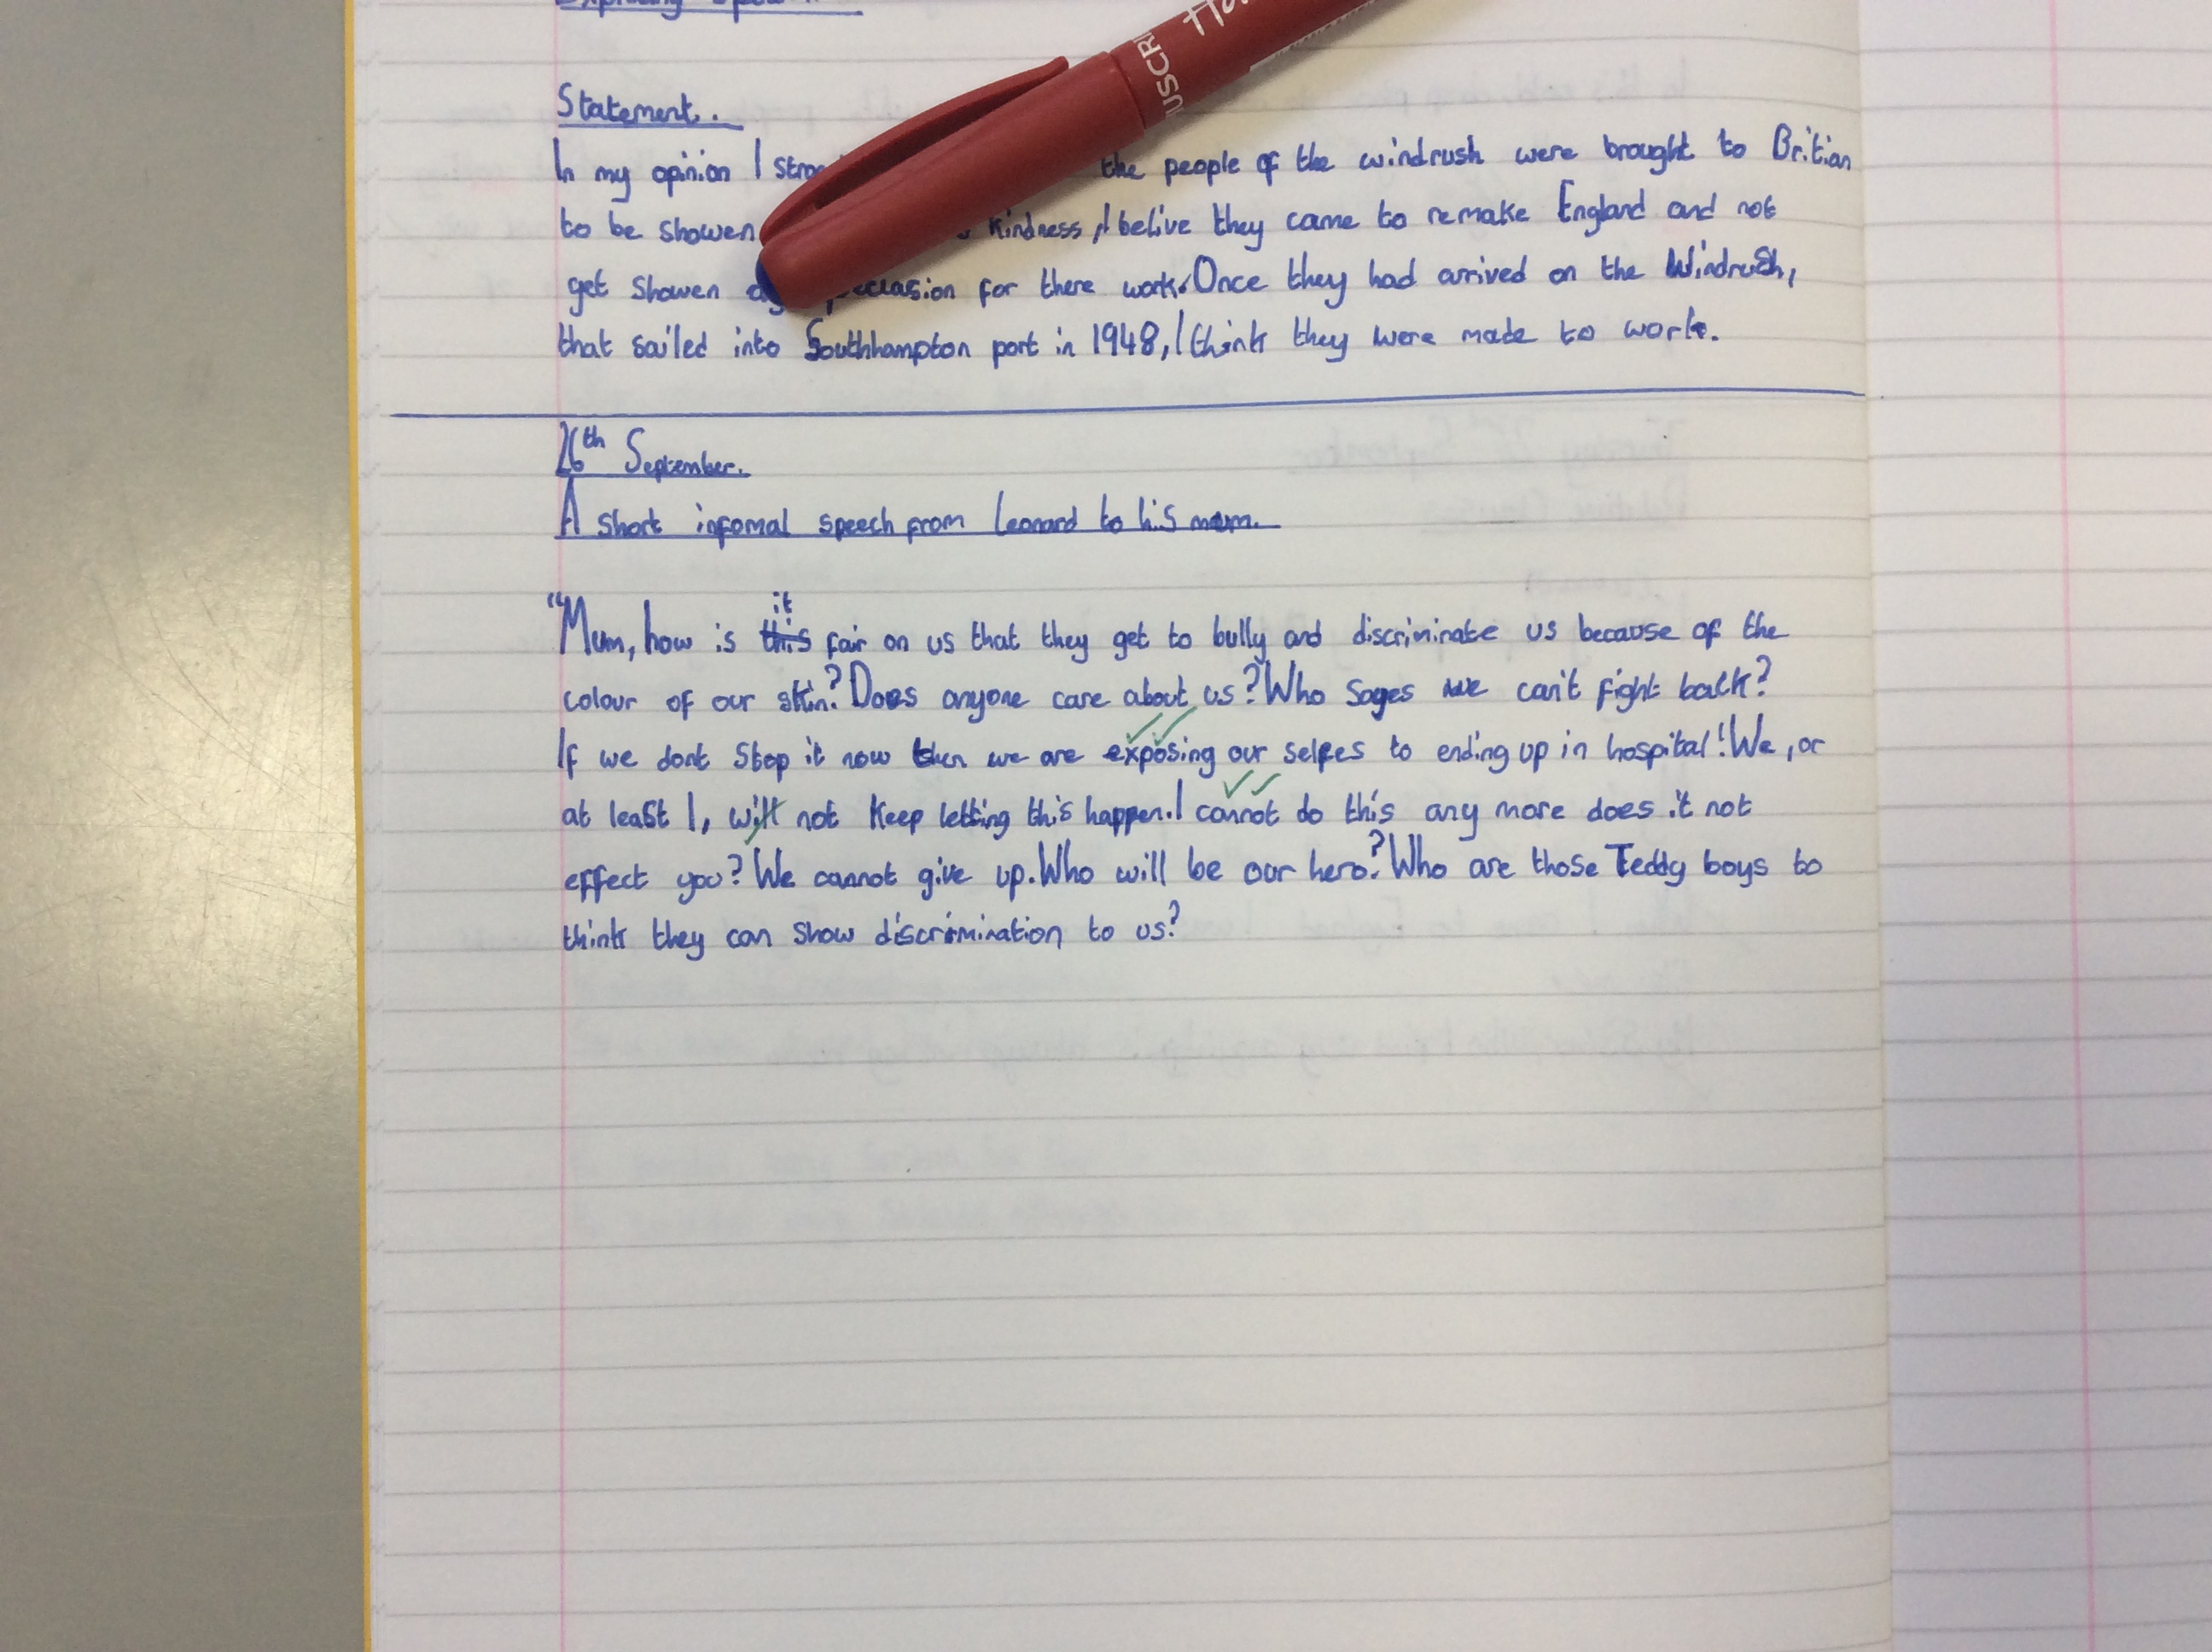 Statement.
In my opinion I the people of the windrush were brought to Britian
to be showen kindness, I belive they came to remake England and not
get showen for there work. Once they had arrived on the Windrush,
that sailed into Southhampton port in 1948, I think they were made to work.
26th September.
A short infomal speech from Leonard to his mum.
it
"Mum, how is this fair on us that they get to bully and discriminate us because of the
colour of our skin? Does anyone care about us? Who sages we can't fight back?
If we dont stop it now then we are exposing our selfes to ending up in hospital! We, or
at least I, will not keep letting this happen. I cannot do this any more does it not
effect you? We cannot give up. Who will be our hero? Who are those Teddy boys to
think they can show discrimination to us?